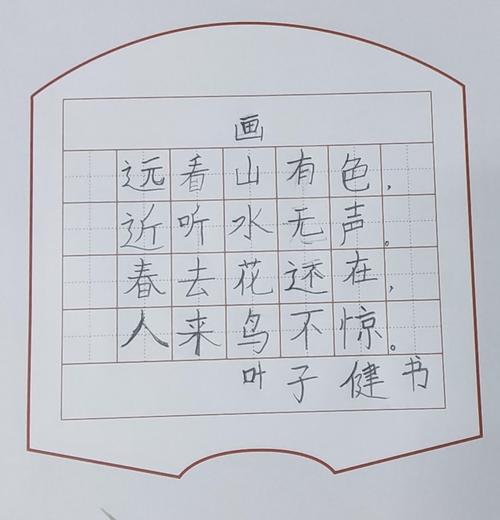 画
远看山有色,
近听水无声。
春去花还在,
人来鸟不惊。
叶子健书